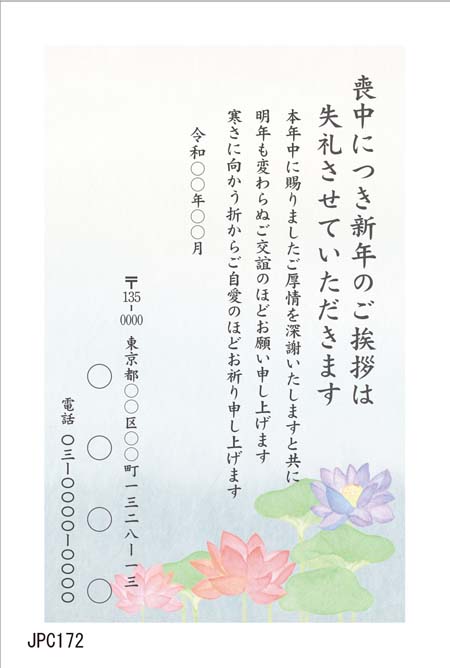 喪中につき新年のご挨拶は
失礼させていただきます
本年中に賜りましたご厚情を深謝いたしますと共に
明年も変わらぬご交誼のほどお願い申し上げます
寒さに向かう折からご自愛のほどお祈り申し上げます
令和〇〇年〇〇月
〒135-0000 東京都〇〇区〇〇町一三二八-一三
〇〇〇〇
電話 〇三-〇〇〇〇-〇〇〇〇
JPC172